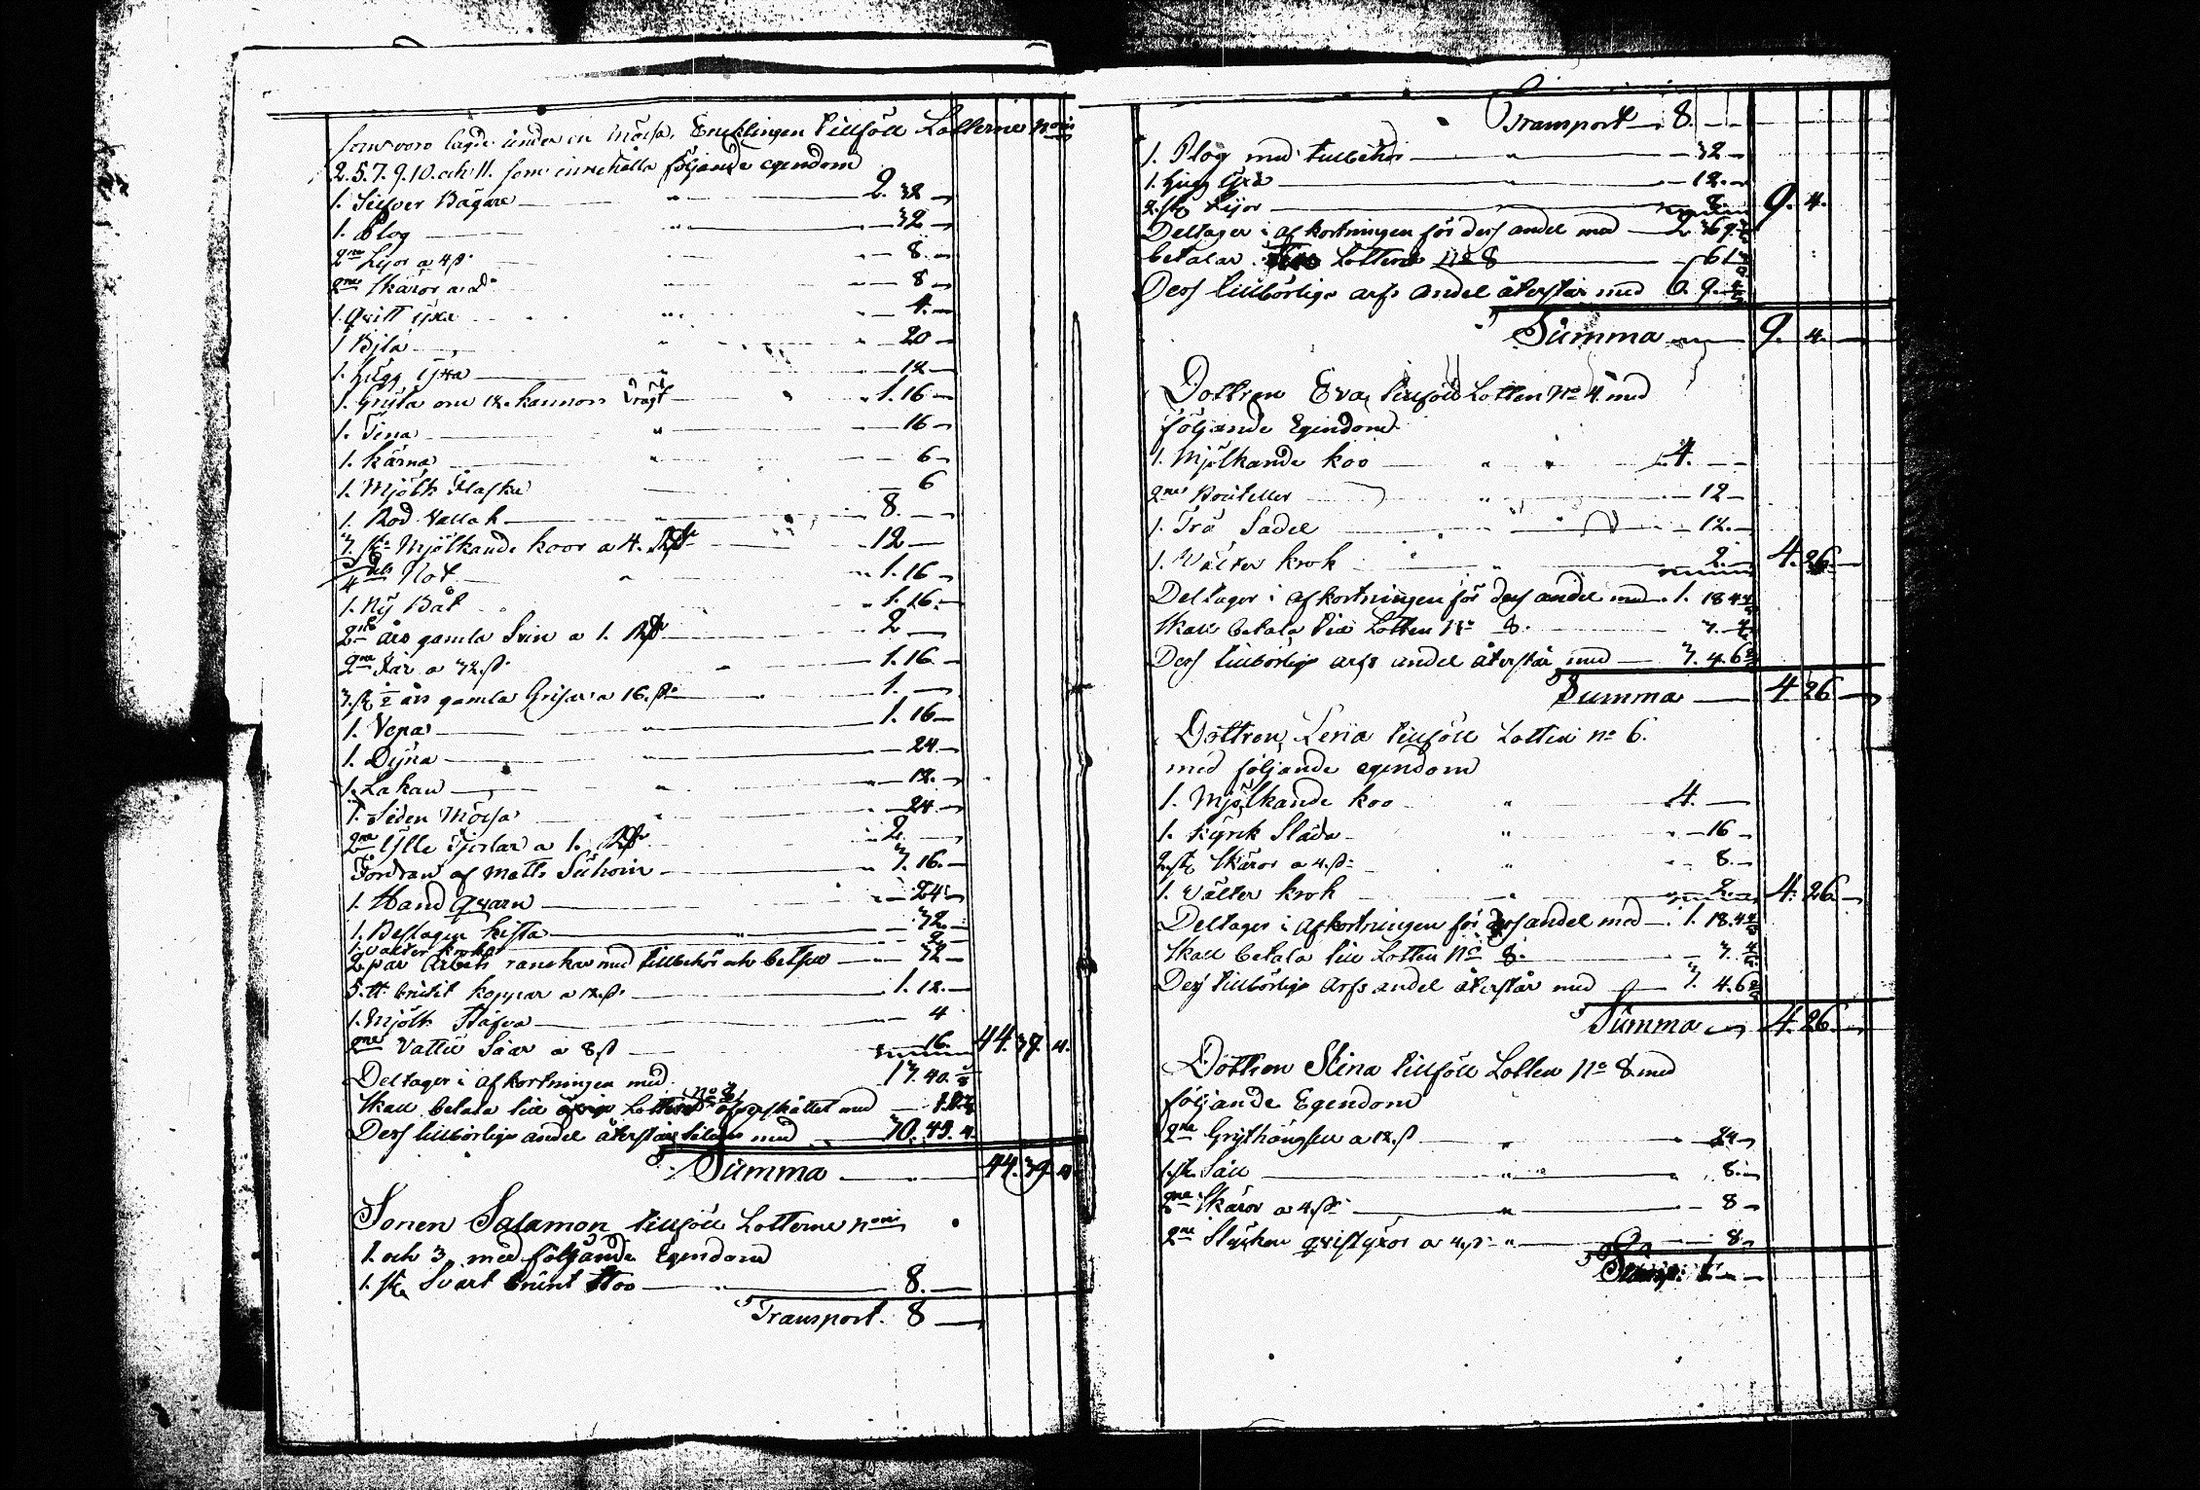 som voro lagde under en mössa, Encklingen tillföll Lotterne N:ris
2. 5. 7. 9. 10. och 11. som innehålla följande egendom
1. Silfver Bägare — " — 2. 32 —
1. Plog — " — 32 —
2:ne Lijor a 4 ß — " — 8. —
2:ne Skäror a d:o — " — 8 —
1. Qvist yxa — " — 4. —
1 Bila — " — 20 —
1. hugg yxa — " — 12 —
1. Gryta om 12. kannors vrågt — " — 1. 16 —
1. Tina — " — 16 —
1. kärna — " — 6 —
1. Mjölk flaska — 6
1. Rod Vallak — " — 8. —
3. st: Mjölkande koor a 4. Rdr — 12 —
3/4 dels Not — " — 1. 16 —
1. Ny Båt — 1. 16. —
2:ne års gamla Svin a 1. Rdr — 2 —
2:ne Får a 32. ß — 1. 16. —
3. st ½ års gamla Grisar a 16. ß — 1. —
1. Vepa — " — 1. 16 —
1. Dyna — " — 24. —
1. Lakan — " — 12. —
1. Siden Mössa — " — 24. —
2:ne Ylle kjortlar a 1. Rdr — 2. —
Fordran af Matts — 3. 16. —
1. Hand qvarn — 24 —
1. Beslagen kista — " — 32. —
1. välter krok — 2 —
2 par Arbets rankor med tillbehör och betslar — 32 —
5. tt brukit koppar a 12. ß — 1. 12. —
1. Mjölk Stäfva — 4
2:ne Vattu Såar a 8 ß — 16. — 44. 39. 4.
Deltager i afkortningen med — 13. 40.
Skall betala till Lotten N:o 8 öfverskottet med —
Dess tillbörlige andel återstår således med — 30. 43. 4.
Summa — 44. 39. 4
Sonen Salamon tillföll Lotterne N:ris
1. och 3. med följande Egendom
1. st. Svart brunt Stoo — 8. —
Transport. 8 —
Transport — 8. —
1. Plog med tillbehör — " — 32 —
1. hugg yxa — " — 12. —
2. st Lijor — 8. — 9. 4.
Deltager i afkortningen för dess andel med — 2. 36
betalar Lotten N:o 8 — 6
Dess tillbörlige arfs andel återstår med 6. 9.
Summa — 9. 4. —
Dottren Eva, tillföll Lotten N:o 4. med
följande Egendom.
1. Mjölkande koo — " — 4. —
2:ne Bouteller — " — 12 —
1. Trä Sadel — " — 12. —
1. Välter krok — " — 2. — 4. 26. —
Deltager i afkortningen för dess andel med. 1. 18.
Skall betala till Lotten N:o 8. — 3.
Dess tillbörlige arfs andel återstår med — 3. 4. 6
Summa — 4. 26 —
Dottren, Lena tillföll Lotten N:o 6.
med följande egendom
1. Mjölkande koo — " — 4. —
1. kyrk Släda — " — 16 —
2. st Skäror a 4. ß — " — 8. —
1. Välter krok — " — 2. — 4. 26. —
Deltager i afkortningen för dess andel med — 1. 18.
Skall betala till Lotten N:o 8. — 3.
Dess tillbörlige Arfs andel återstår med — 3. 4. 6
Summa — 4. 26. —
Dottren Stina tillföll Lotten N:o 8 med
följande Egendom
2:ne Gryt a 12. ß — " — 24 —
1. st. Såll — " — 8. —
2:ne Skäror a 4. ß — " — 8 —
2:ne Stycken qvistyxor a 4. ß — " — 8 —